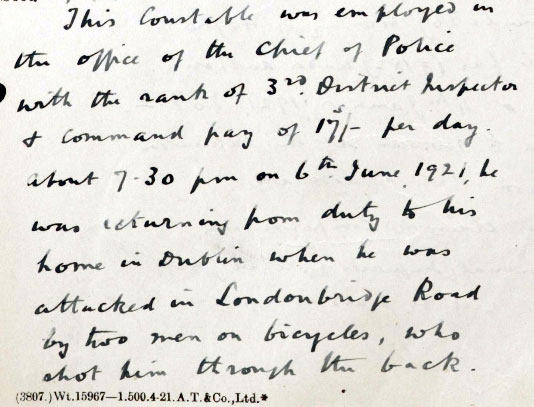 This Constable was employed in
the office of the Chief of Police
with the rank of 3rd. District Inspector
& command pay of 17s/- per day.
About 7-30 pm on 6th June, 1921, he
was returning from duty to his
home in Dublin when he was
attacked in Londonbridge Road
by two men on bicycles, who
shot him through the back.
(3807.) Wt.15967—1.500.4-21. A.T. & Co., Ltd.*